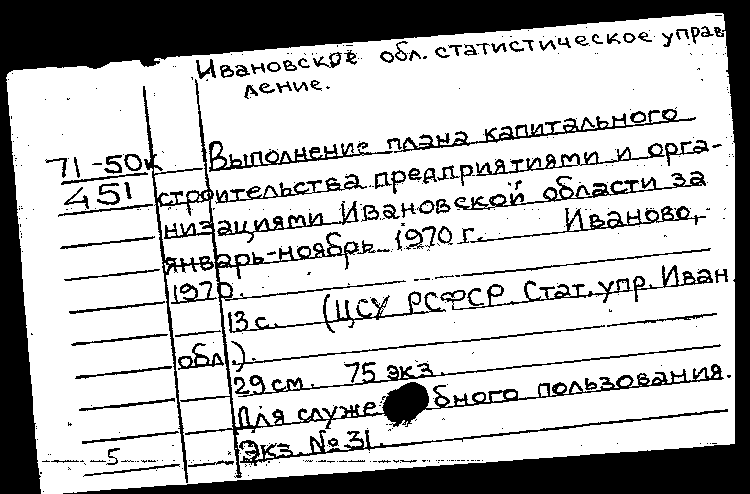 Ивановское обл. статистическое управ
ление.
71-50к Выполнение плана капитального
451 строительства предприятиями и орга-
низациями Ивановской области за
январь-ноябрь 1970 г. Иваново,
1970.
13 с. (ЦСУ РСФСР. Стат. упр. Иван.
обл.).
29 см. 75 экз.
Для служебного пользования.
Экз. № 31.
5